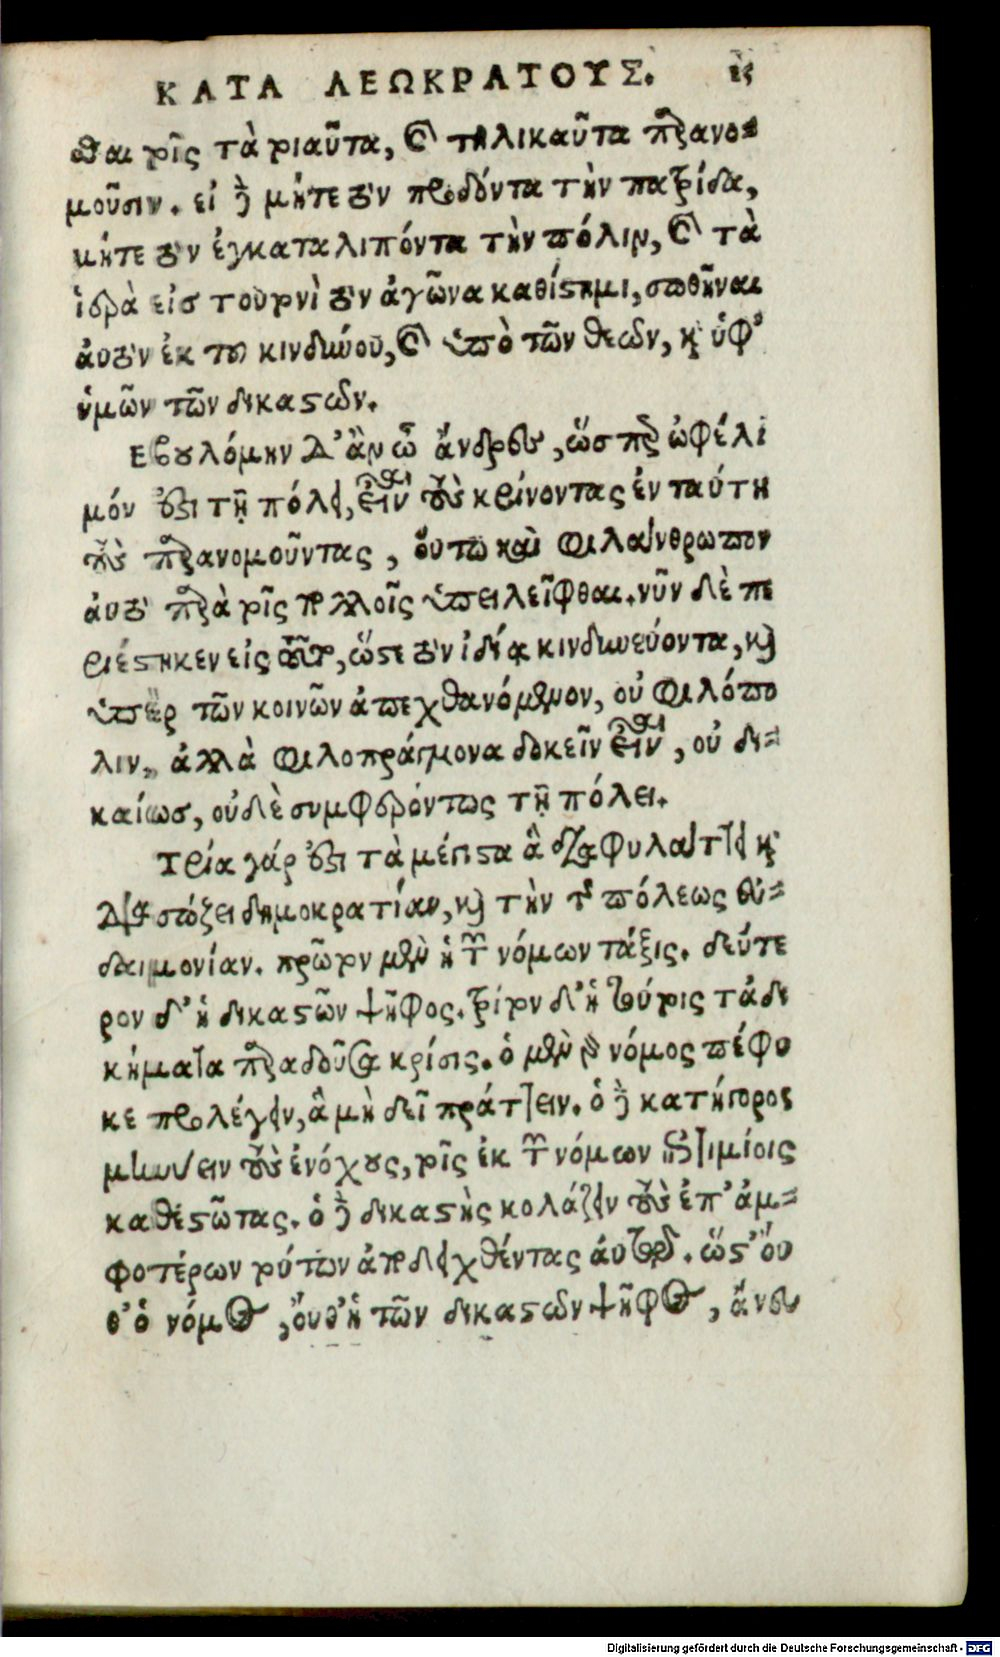 ΚΑΤΑ ΛΕΩΚΡΑΤΟΥΣ. ις
σθαι τοῖς τὰ τοιαῦτα, καὶ τηλικαῦτα παρανο=
μοῦσιν. εἰ δὲ μήτε τὸν προδόντα τὴν πατρίδα,
μήτε τὸν ἐγκαταλιπόντα τὴν πόλιν, καὶ τὰ
ἱερὰ εἰσ τουτονὶ τὸν ἀγῶνα καθίστημι, σωθῆναι
ἀυτὸν ἐκ τοῦ κινδύνου, καὶ ὑπὸ τῶν θεῶν, καὶ ὑφ'
ὑμῶν τῶν δικαστῶν.
Εβουλόμην δ' ἂν ὦ ἄνδρες, ὥσπερ ὠφέλι
μόν ἐστι τῇ πόλει, εἶναι τοὺς κρίνοντας ἐν ταύτη
τοὺς παρανομοῦντας, ὅυτω καὶ φιλάνθρωπον
ἀυτὸ παρὰ τοῖς πολλοῖς ὑπειλεῖφθαι. νῦν δὲ πε
ριέστηκεν εἰς τοῦτο, ὥστε τὸν ἰδίᾳ κινδυνεύοντα, καὶ
ὑπὲρ τῶν κοινῶν ἀπεχθανόμενον, οὐ φιλόπο
λιν, ἀλλὰ φιλοπράγμονα δοκεῖν εἶναι, οὐ δι=
καίωσ, οὐδὲ συμφερόντως τῇ πόλει.
Τρία γάρ ἐστι τὰ μέγιστα ἃ διαφυλάττει καὶ
διασώζει δημοκρατίαν, καὶ τὴν τῆς πόλεως εὐ=
δαιμονίαν. πρῶτον μὲν ἡ τῶν νόμων τάξις. δεύτε
ρον δ' ἡ δικαστῶν ψῆφος. τρίτον δ' ἡ τούτοις τἀδι
κήματα παραδοῦσα κρίσις. ὁ μὲν γὰρ νόμος πέφυ
κε προλέγειν, ἃ μὴ δεῖ πράττειν. ὁ δὲ κατήγορος
μηνύειν τοὺς ἐνόχους, τοῖς ἐκ τῶν νόμων ἐπιτιμίοις
καθεστῶτας. ὁ δὲ δικαστὴς κολάζειν τοὺς ἐπ' ἀμ=
φοτέρων τούτων ἀποδειχθέντας ἀυτῷ. ὥστ' ὄυ
θ' ὁ νόμος, ὄυθ' ἡ τῶν δικαστῶν ψῆφος, ἄνευ
Digitalisierung gefördert durch die Deutsche Forschungsgemeinschaft - DFG